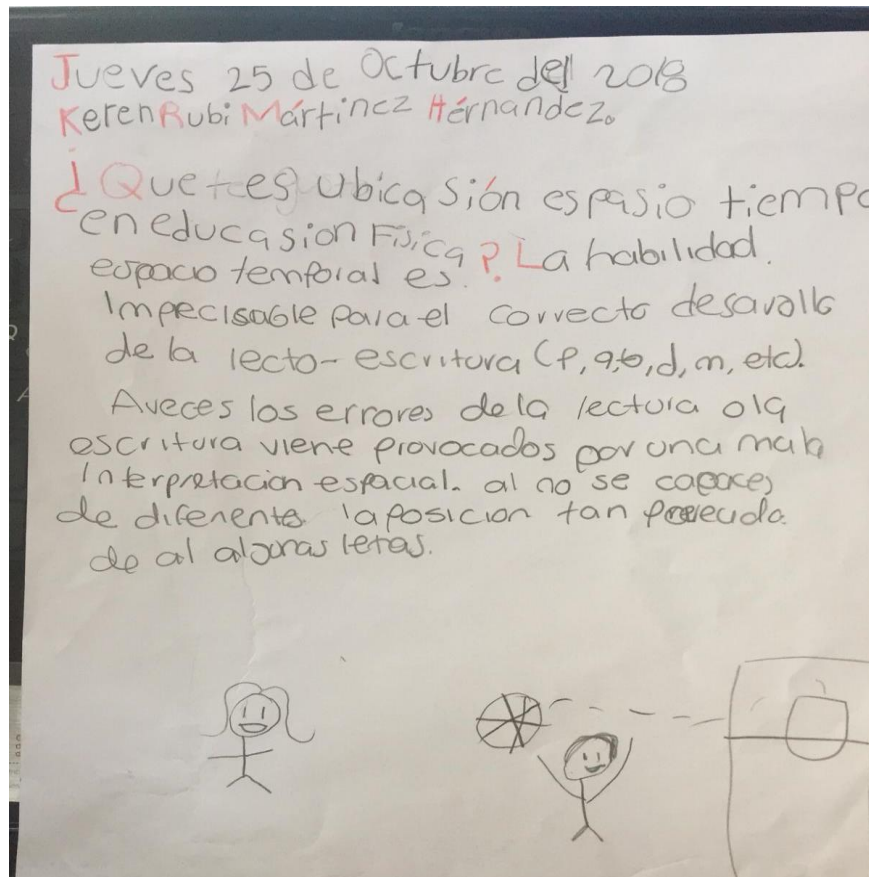 Jueves 25 de Octubre del 2018
Keren Rubi Mártinez Hérnandez.
¿Que es ubicasión espasio tiempo
en educasion Fisica?. La habilidad.
espacio temporal es.
Impecisable para el correcto desarollo
de la lecto-escritura (p, q, b, d, m, etc).
Aveces los errores de la lectura o la
escritura viene provocados por una mala
Interpretacion espacial. al no se capaces
de diferente la posicion tan
de al algunas letas.